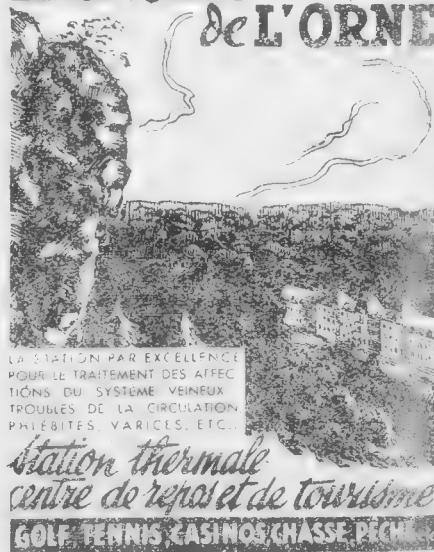 de L'ORNE
LA STATION PAR EXCELLENCE
POUR LE TRAITEMENT DES AFFEC
TIONS DU SYSTÈME VEINEUX
TROUBLES DE LA CIRCULATION
PHLÉBITES, VARICES, ETC...
Station thermale
centre de repos et de tourisme
GOLF TENNIS CASINOS CHASSE PECH